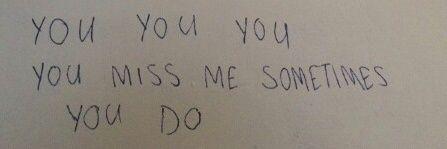 YOU YOU YOU
YOU MISS ME SOMETIMES
YOU DO